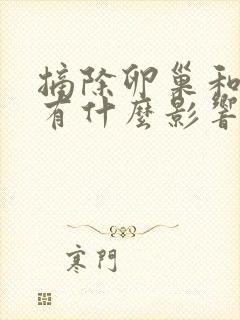 摘除卵巢和
有什麼影響
寒門